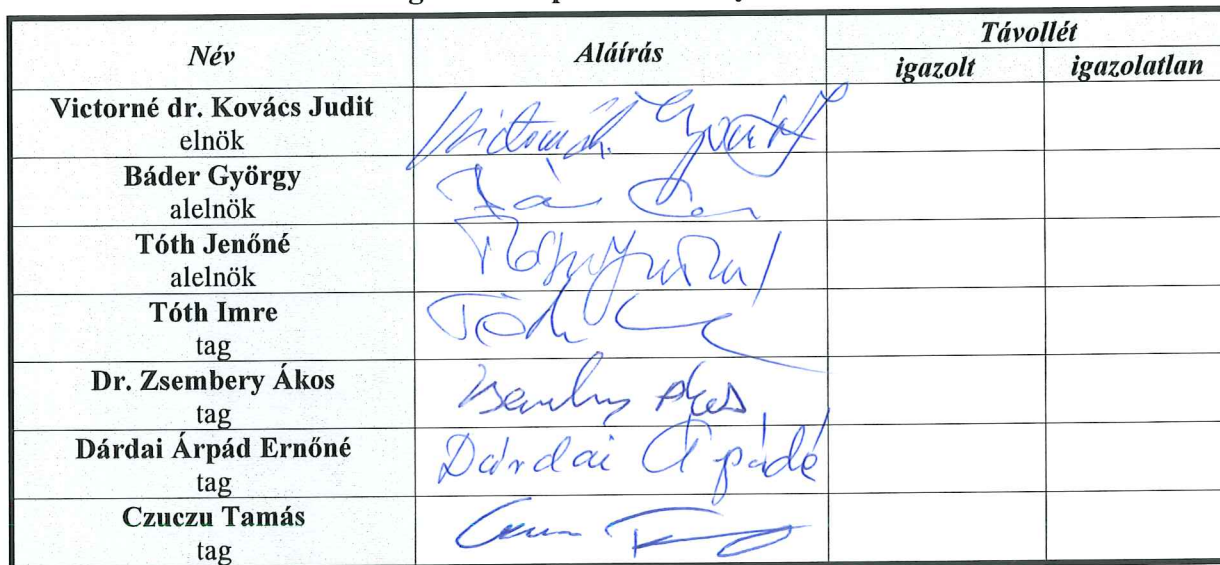 Név Aláírás Távollét
igazolt igazolatlan
Victorné dr. Kovács Judit
elnök
Báder György
alelnök
Tóth Jenőné
alelnök
Tóth Imre
Tóth
tag
Dr. Zsembery Ákos
Zsembery Ákos
tag
Dárdai Árpád Ernőné
Dárdai Árpádé
tag
Czuczu Tamás
tag